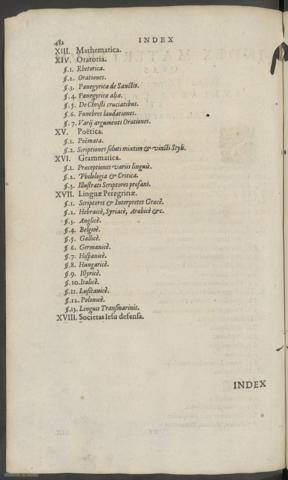 482 INDEX
XIII. Mathematica.
XIV. Oratoria.
§.1. Rhetorica.
§.2. Orationes.
§.3. Panegyrica de Sanctis.
§.4. Panegyrica alia.
§.5. De Christi cruciatibus.
§.6. Funebres laudationes.
§.7. Varij argumenti Orationes.
XV. Poëtica.
§.1. Poëmata.
§.2. Scriptiones soluti mixtim & vincti Styli.
XVI. Grammatica.
§.1. Praeceptiones variis linguis.
§.2. Philologia & Critica.
§.3. Illustrati Scriptores profani.
XVII. Linguæ Peregrinæ.
§.1. Scriptores & Interpretes Græcè.
§.2. Hebraicè, Syriacè, Arabicè &c.
§.3. Anglicè.
§.4. Belgicè.
§.5. Gallicè.
§.6. Germanicè.
§.7. Hispanicè.
§.8. Hungaricè.
§.9. Illyricè.
§.10. Italicè.
§.11. Lusitanicè.
§.12. Polonicè.
§.13. Linguis Transmarinis.
XVIII. Societas Iesu defensa.
INDEX